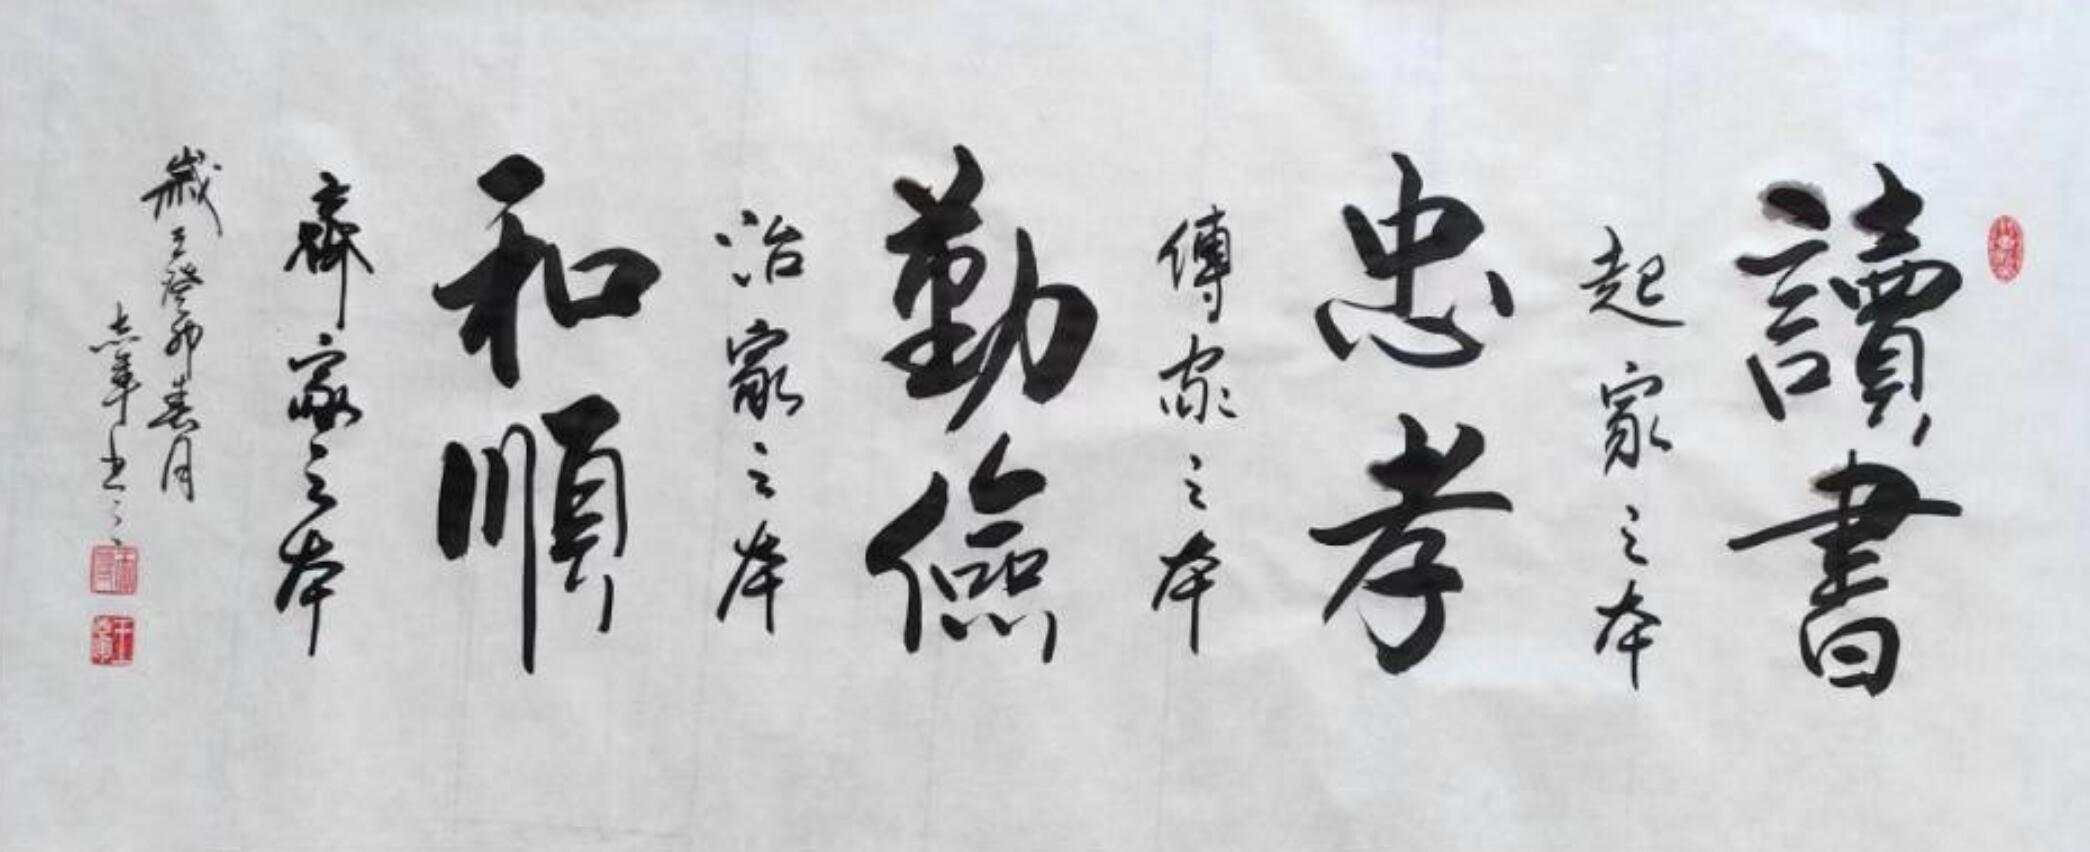 讀書
起家之本
忠孝
傳家之本
勤儉
治家之本
和順
齊家之本
歲在癸卯春月
志軍书